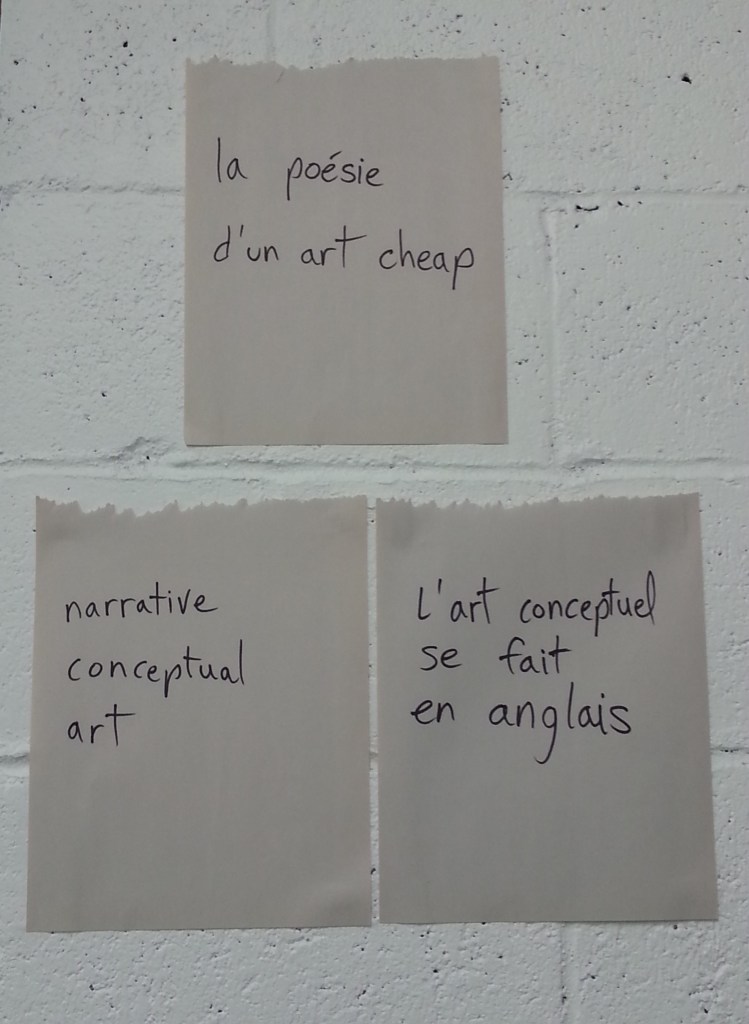 la poésie
d'un art cheap
narrative
conceptual
art
l'art conceptuel
se fait
en anglais